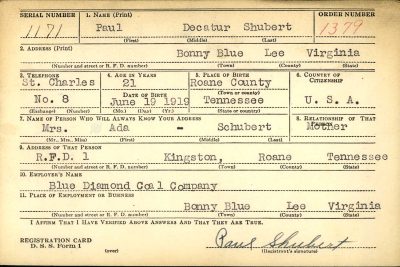 SERIAL NUMBER 1. NAME (Print) ORDER NUMBER
1171 Paul Decatur Shubert 1379
(First) (Middle) (Last)
2. ADDRESS (Print)
Bonny Blue Lee Virginia
(Number and street or R. F. D. number) (Town) (County) (State)
3. TELEPHONE 4. AGE IN YEARS 5. PLACE OF BIRTH 6. COUNTRY OF CITIZENSHIP
St. Charles 21 Roane County
DATE OF BIRTH (Town or county)
No. 8 June 19 1919 Tennessee U. S. A.
(Exchange) (Number) (Mo.) (Day) (Yr.) (State or country)
7. NAME OF PERSON WHO WILL ALWAYS KNOW YOUR ADDRESS 8. RELATIONSHIP OF THAT PERSON
Mrs. Ada - Schubert Mother
(Mr., Mrs., Miss) (First) (Middle) (Last)
9. ADDRESS OF THAT PERSON
R.F.D. 1 Kingston, Roane Tennessee
(Number and street or R. F. D. number) (Town) (County) (State)
10. EMPLOYER'S NAME
Blue Diamond Coal Company
11. PLACE OF EMPLOYMENT OR BUSINESS
Bonny Blue Lee Virginia
(Number and street or R. F. D. number) (Town) (County) (State)
I AFFIRM THAT I HAVE VERIFIED ABOVE ANSWERS AND THAT THEY ARE TRUE.
REGISTRATION CARD
D. S. S. Form 1 (over) Paul Shubert
(Registrant's signature)